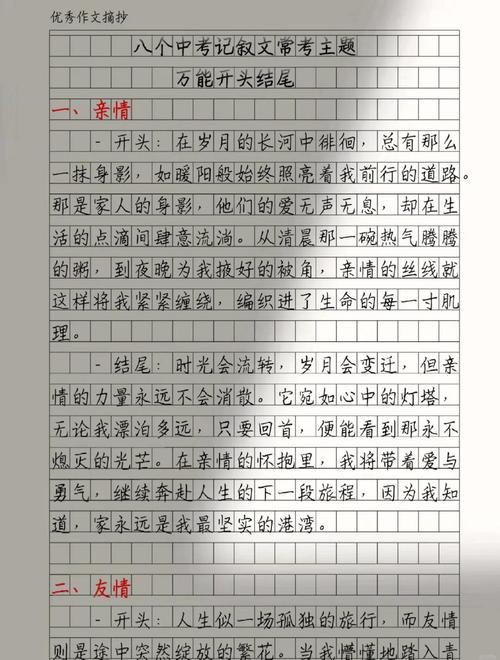 优秀作文摘抄
八个中考记叙文常考主题
万能开头结尾
一、亲情
- 开头：在岁月的长河中徘徊，总有那么
一抹身影，如暖阳般始终照亮着我前行的道路。
那是家人的身影，他们的爱无声无息，却在生
活的点滴间肆意流淌。从清晨那一碗热气腾腾
的粥，到夜晚为我掖好的被角，亲情的丝线就
这样将我紧紧缠绕，编织进了生命的每一寸肌
理。
- 结尾：时光会流转，岁月会变迁，但亲
情的力量永远不会消散。它宛如心中的灯塔，
无论我漂泊多远，只要回首，便能看到那永不
熄灭的光芒。在亲情的怀抱里，我将带着爱与
勇气，继续奔赴人生的下一段旅程，因为我知
道，家永远是我最坚实的港湾。
二、友情
- 开头：人生似一场孤独的旅行，而友情
则是途中突然绽放的繁花。当我懵懂地踏入青